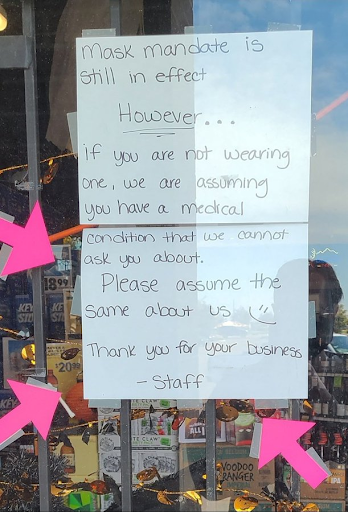 Mask mandate is
still in effect
However...
if you are not wearing
one, we are assuming
you have a medical
condition that we cannot
ask you about.
Please assume the
same about us
Thank you for your business
- Staff
18.99
$20
CLAW
VOODOO
RANGER
IPA